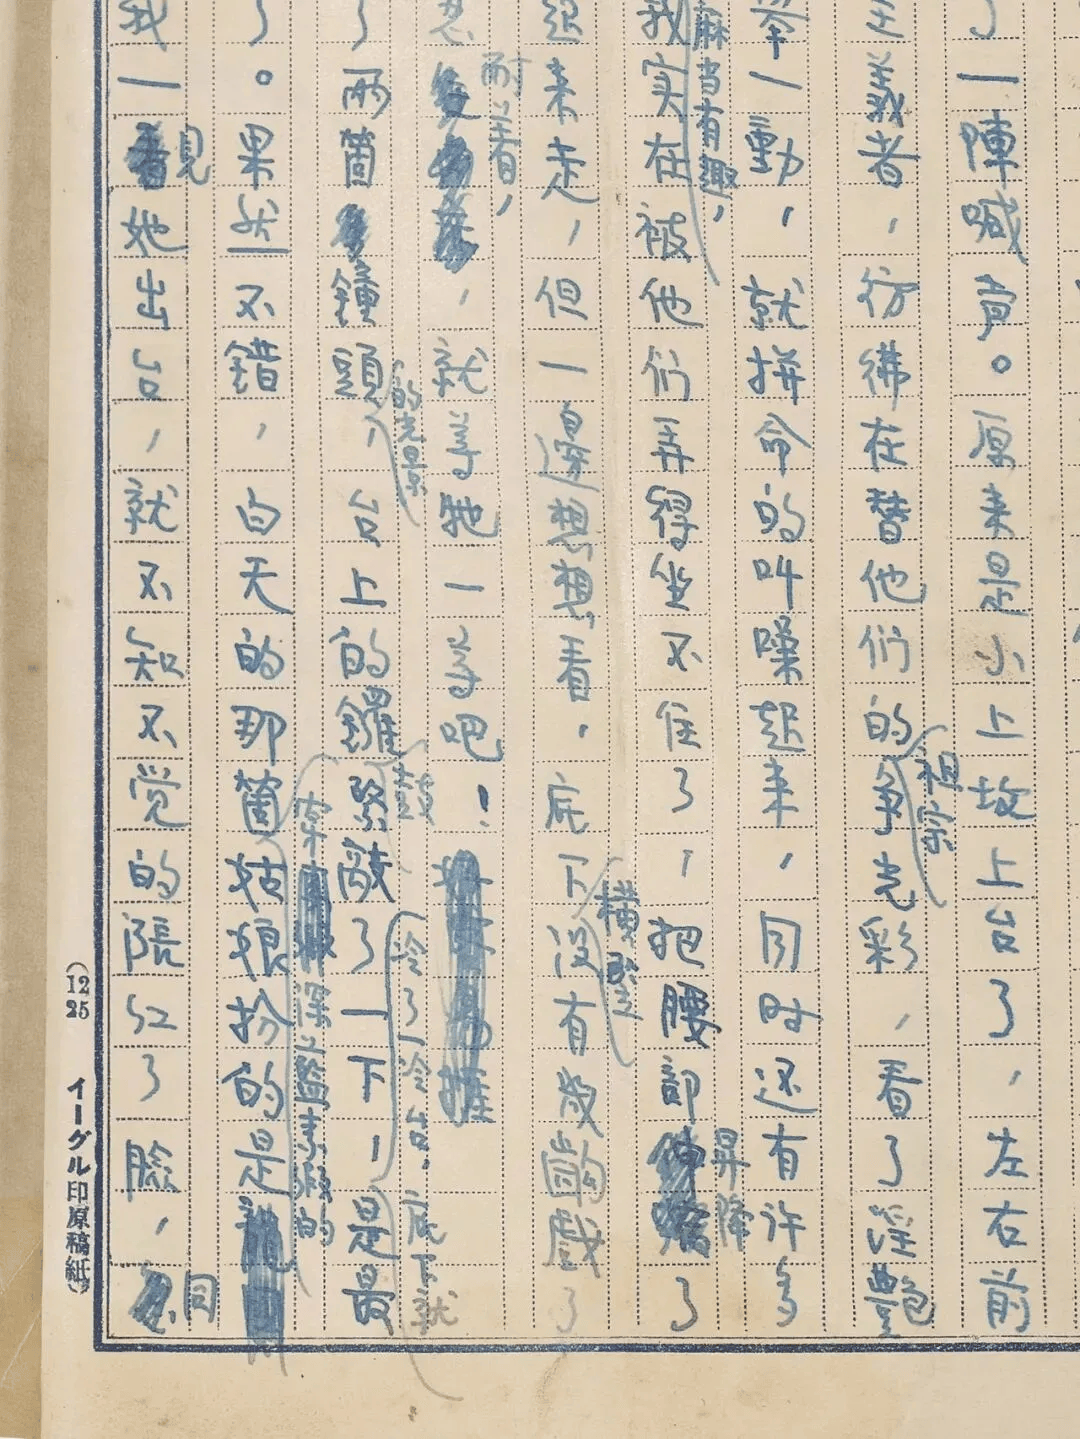 了一陣喊声。原来是小上坟上台了，左右前
主義者，彷彿在替他们的争光彩，看了淫艷
祖宗
举一動，就拼命的叫嚷起来，同时还有许多
麻当有趣，
我实在被他们弄得坐不住了，把腰部了
昇降
起来走，但一還想想看，底下没有幾齣戲了
横竪
耐着，
，就等牠一等吧！
了兩箇鐘頭，台上的鑼緊敲了一下，是最
的光景
鼓
冷了一冷台．底下就
了。果然不错，白天的那箇姑娘扮的是
梁上監
的
我一她出台，就不知不觉的陪红了臉，
見
同
(12 25 イーグル印原稿紙)